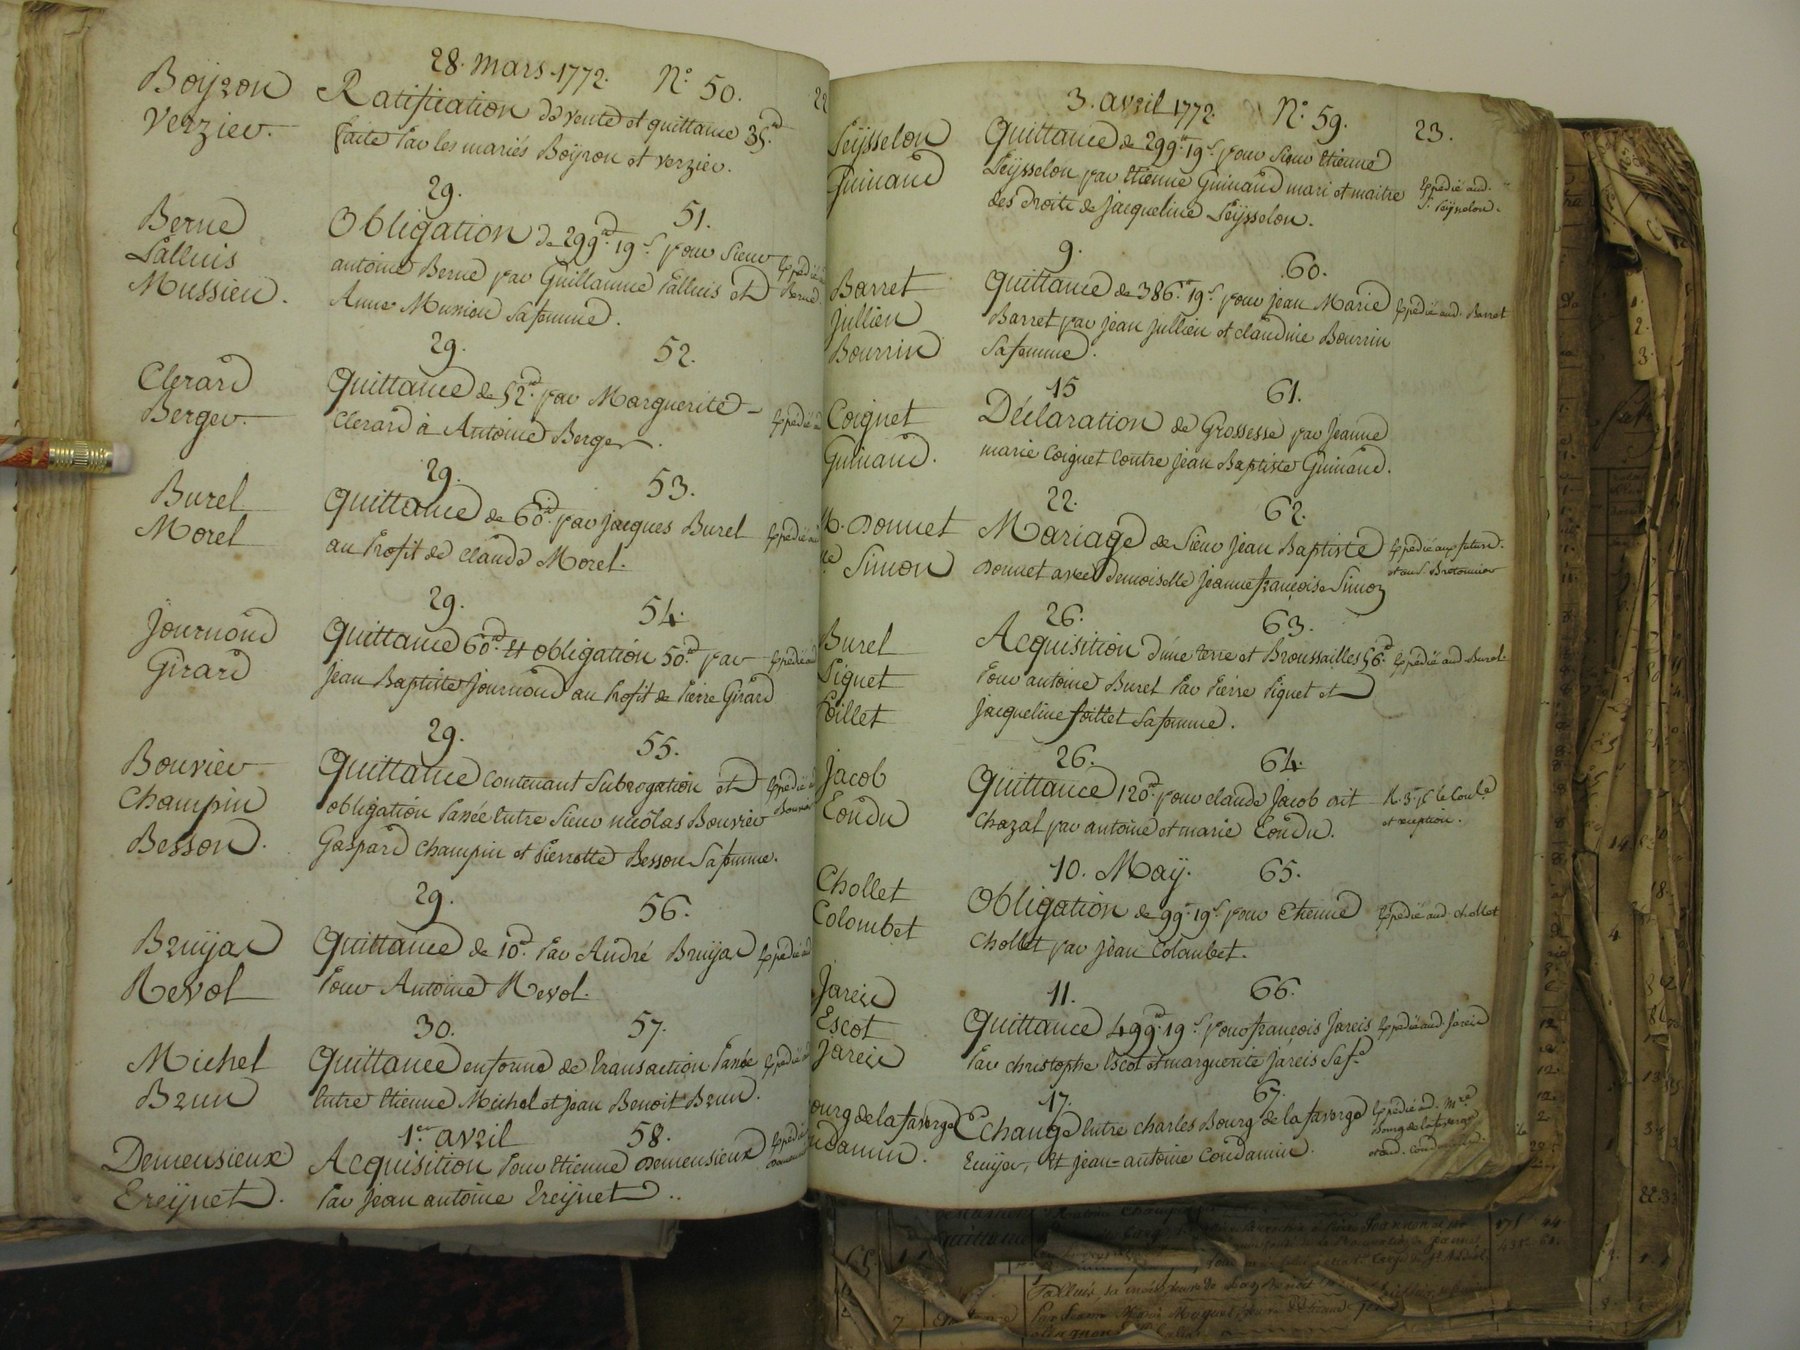 28. Mars 1772. N.° 50. 22
Boÿron
Verzier.
Ratification de vente et quittance 35.ᵗᵗ
faite Par les mariés Boÿron et verzier.
29. 51.
Berne
Palluis
Mussieu.
Obligation de 299.ᵗᵗ 19.ˢ pour Sieur
antoine Berne par Guillaume Palluis et
Anne Mussieu Sa femme.
Expédié
Berne
29. 52.
Clerard
Berger.
Quittance de 52.ᵗᵗ par Marguerite
Clerard à Antoine Berger.
Expédié
29. 53.
Burel
Morel
Quittance de 60.ᵗᵗ par jacques Burel
au Profit de claude Morel.
Expédié
29. 54.
Journoud
Girard
Quittance 60.ᵗᵗ et obligation 50.ᵗᵗ par
Jean Baptiste Journoud au Profit de Pierre Girard
Expédié
29. 55.
Bouvier
Champin
Besson.
Quittance contenant Subrogation et
obligation Passée Entre Sieur nicolas Bouvier
Gaspard Champin et Pierrette Besson Sa femme.
Expédié
29. 56.
Bruyar
Revol
Quittance de 10.ᵗᵗ Par André Bruÿar
Pour Antoine Revol.
Expédié
30. 57.
Michel
Brun
Quittance en forme de transaction Passée
Entre Etienne Michel et jean Benoit Brun.
Expédié
1.er avril 58.
Demeusieux
Ereÿnet.
Acquisition Pour Etienne Demeusieux
Par Jean antoine Ereÿnet.
Expédié
3. avril 1772. N.° 59. 23.
Peÿsselon
Guinand
Quittance de 299.ᵗᵗ 19.ˢ pour Sieur Etienne
Peÿsselon par Etienne Guinand mari et maitre
des Droits de jacqueline Peÿsselon.
Expédié aud.
S. Peÿsselon.
9. 60.
Barret
Jullien
Bourrin
Quittance de 386.ᵗᵗ 19.ˢ pour jean Marie
Barret par jean jullien et claudine Bourrin
Sa femme.
Expédié aud. Barret
15 61.
Coignet
Guinand.
Déclaration de Grossesse par Jeanne
marie Coignet Contre Jean Baptiste Guinand.
22. 62.
Donnet
Simon
Mariage de Sieur Jean Baptiste
Donnet avec Demoiselle Jeanne françoise Simon
Expédié aux futurs.
et au S. Bretonnier
26. 63.
Burel
Piguet
Poillet
Acquisition d'une terre et Broussailles 56.ᵗᵗ
Pour antoine Burel Par Pierre Piguet et
Jacqueline Poillet Sa femme.
Expédié aud. Burel.
26. 64.
Jacob
Condu
Quittance 120.ᵗᵗ pour claude Jacob dit
Chazal par antoine et marie Condu.
10. Maÿ. 65.
Chollet
Colombet
Obligation de 99.ᵗᵗ 19.ˢ pour Etienne
Chollet par jean Colombet.
Expédié aud. chollet
11. 66.
Jareis
Escot
Jareis
Quittance 499.ᵗᵗ 19.ˢ pour françois Jareis
Par christophe Escot et marguerite Jareis Sa f.e
Expédié aud. Jareis
17. 67.
Bourg de la faverge
Condamin.
Echange Entre charles Bourg de la faverge
Ecuÿer, Et jean-antoine Condamin.
Expédié
Bourg de la faverge
et aud. Condamin.